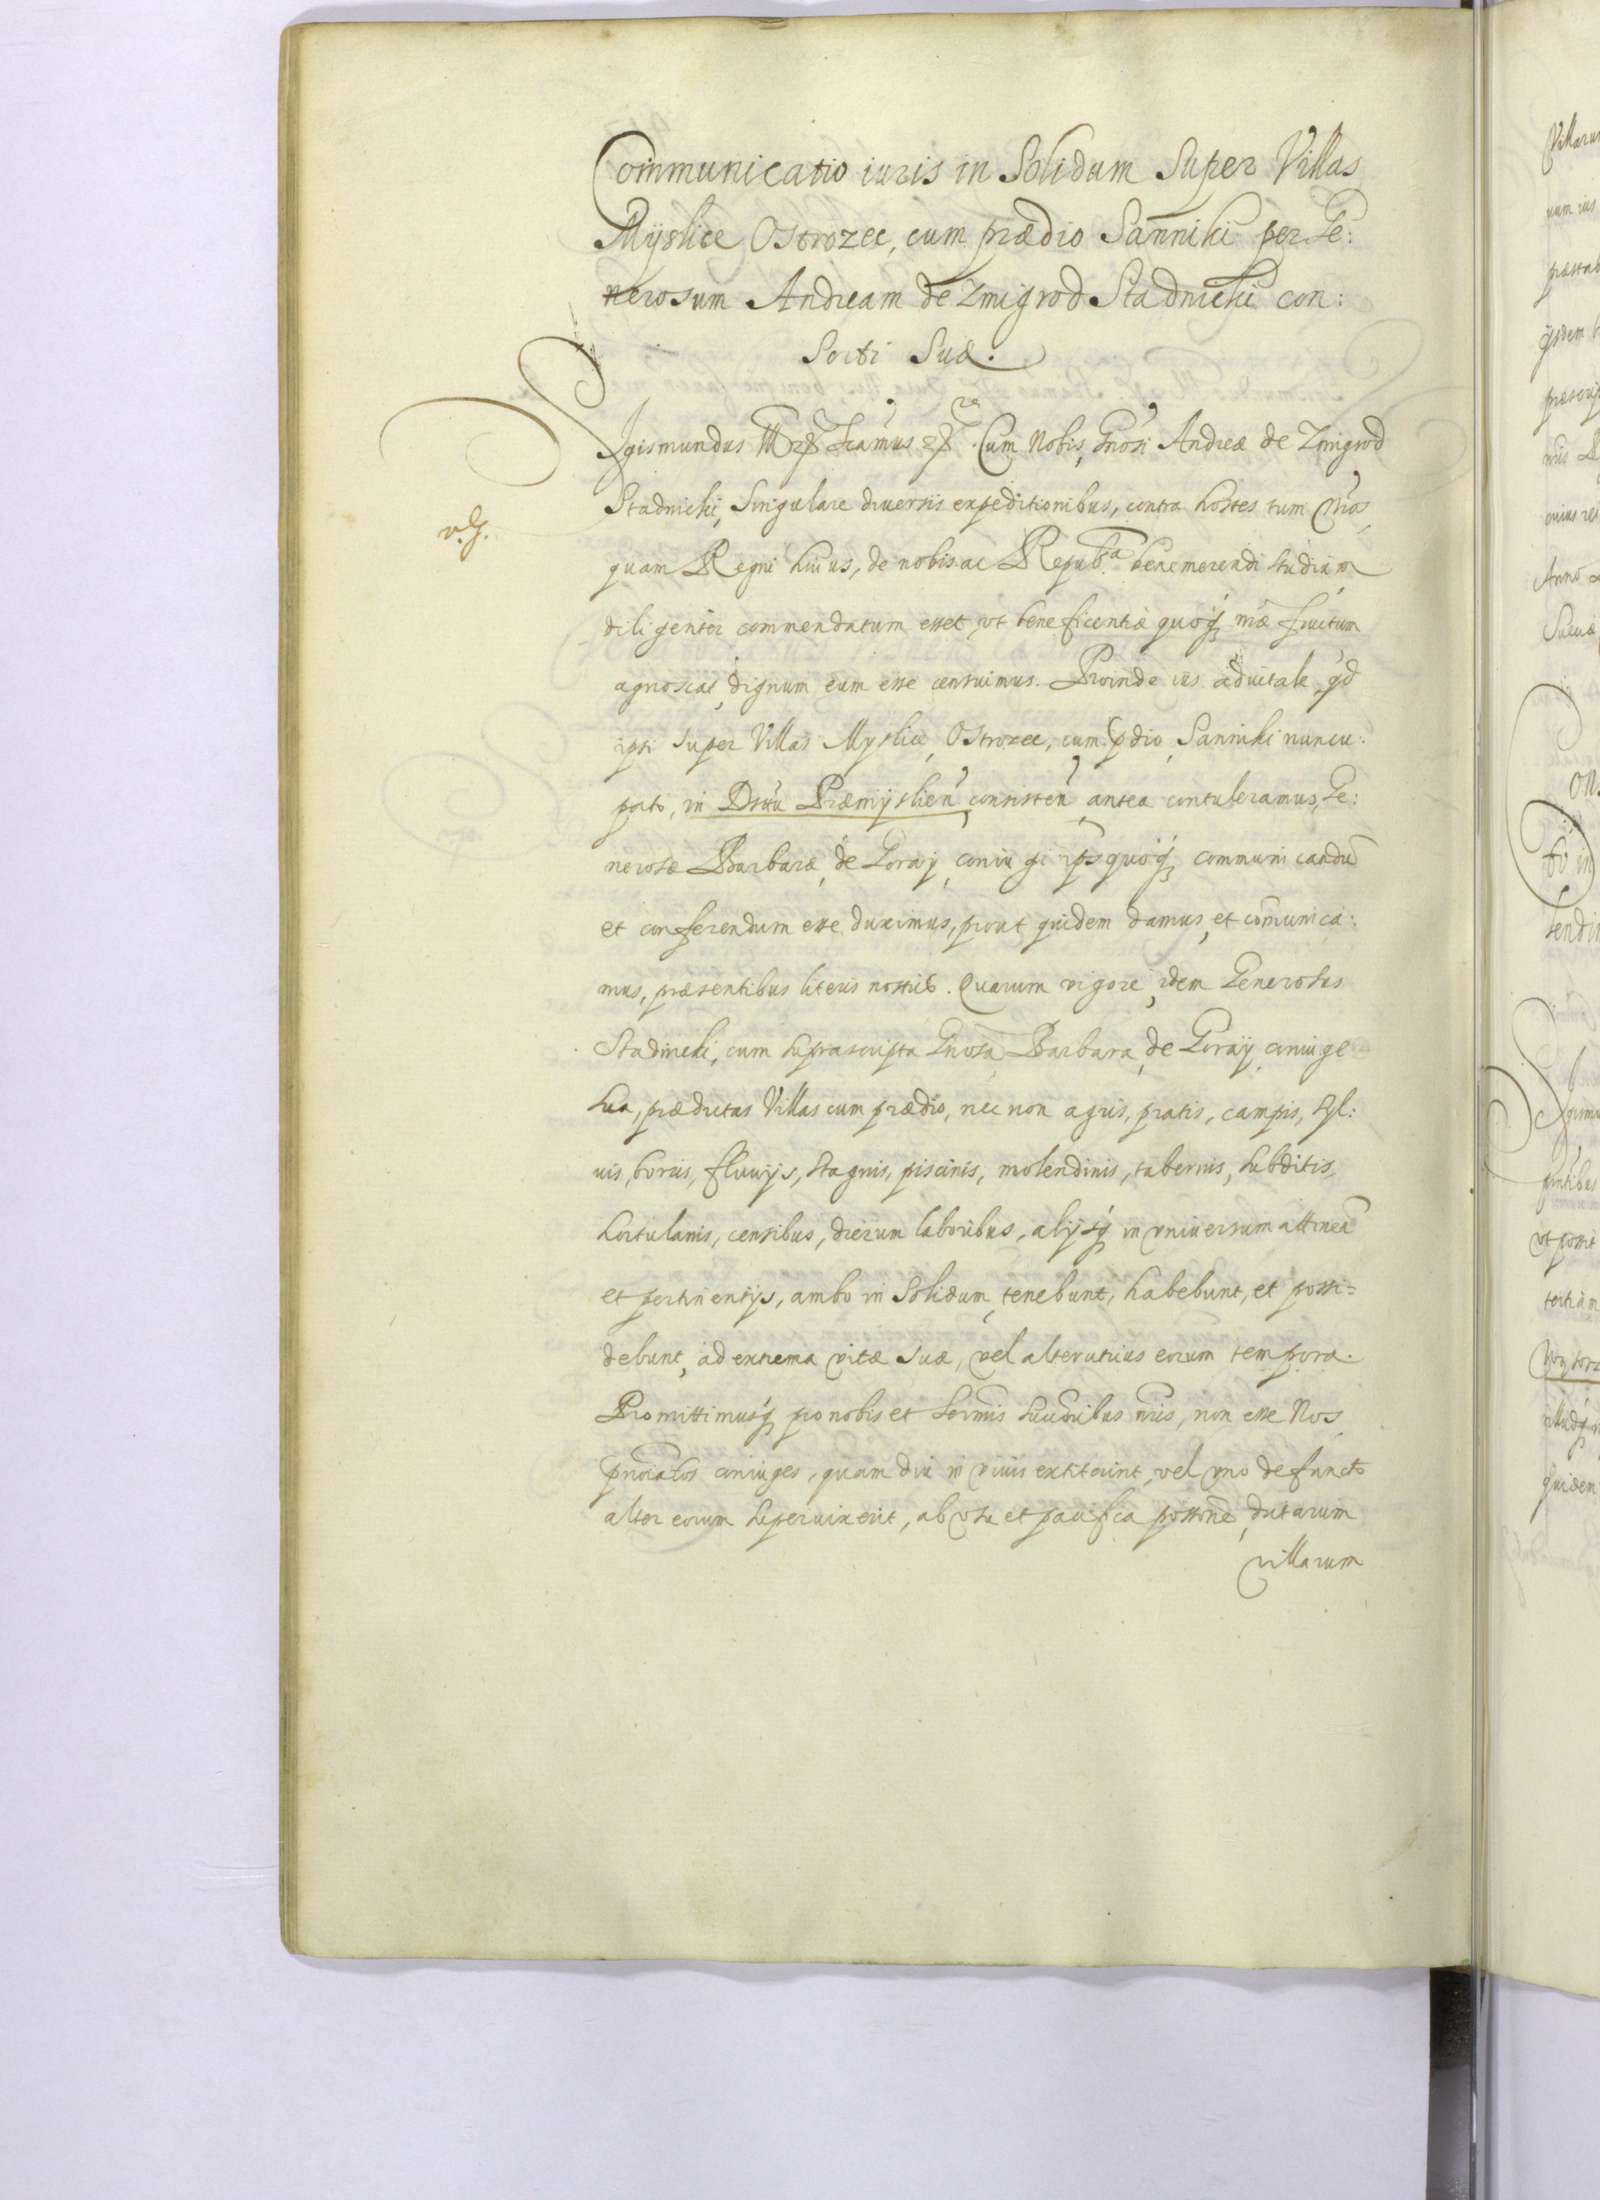 Communicatio iuris in Solidum Super Villas
Myslice Ostrozec, cum prædio Sanniki per Ge:
nerosum Andream de Zmigrod Stadnicki con:
Sorti Suæ.
Sigismundus Cum Nobis, Gnosi Andreæ de Zmigrod
Stadnicki, Singulare diversis expeditionibus, contra hostes tum
quam Regni huius, de nobis ac Repub^ca benemerendi studium
diligenter commendatum esset, ut beneficentiæ quoq₃ nr̃æ fructum
agnoscat, dignum eum esse censuimus. Proinde ius advitale, qd
ipsi super Villas Myslice, Ostrozec, cum pdio, Sanniki nuncu:
pato, in Dsttu Præmyslien̄, consisten̄, antea contuleramus, Ge:
nerosæ Barbaræ, de Goray, coniugi ips quoq₃ communicandū
et conferendum esse duximus, prout quidem damus, et com̄unica:
mus, præsentibus literis nostris. Quarum vigore, idem Generosus
Stadnicki, cum suprascripta Gnosa Barbara, de Goray, coniuge
sua, prædictas Villas cum prædio, nec non agris, pratis, campis, syl:
uis, boris, fluuijs, stagnis, piscinis, molendinis, tabernis, subditis,
hortulanis, censibus, dierum laboribus, alijsq₃ in vniuersum attinen̄
et pertinentijs, ambo in Solidum, tenebunt, habebunt, et possi=
debunt, ad extrema vitæ suæ, vel alterutrius eorum tempora.
Promittimusq₃ pro nobis et Sermis Successoribus nr̃is, non esse Nos,
pnoĩatos coniuges, quam diu in viuis extiterint, vel vno defuncto
alter eorum superuixerit, ab vsu et pacifica possione, dictarum
villarum